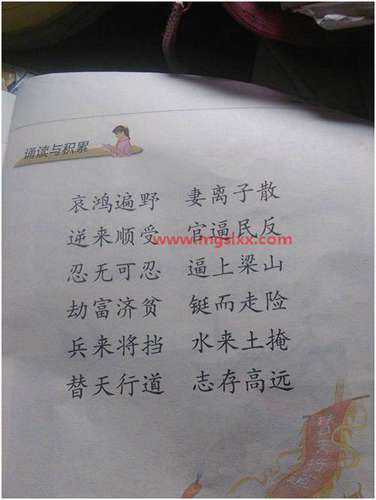 诵读与积累
哀鸿遍野 妻离子散
逆来顺受 官逼民反
www.mgslxx.com
忍无可忍 逼上梁山
劫富济贫 铤而走险
兵来将挡 水来土掩
替天行道 志存高远